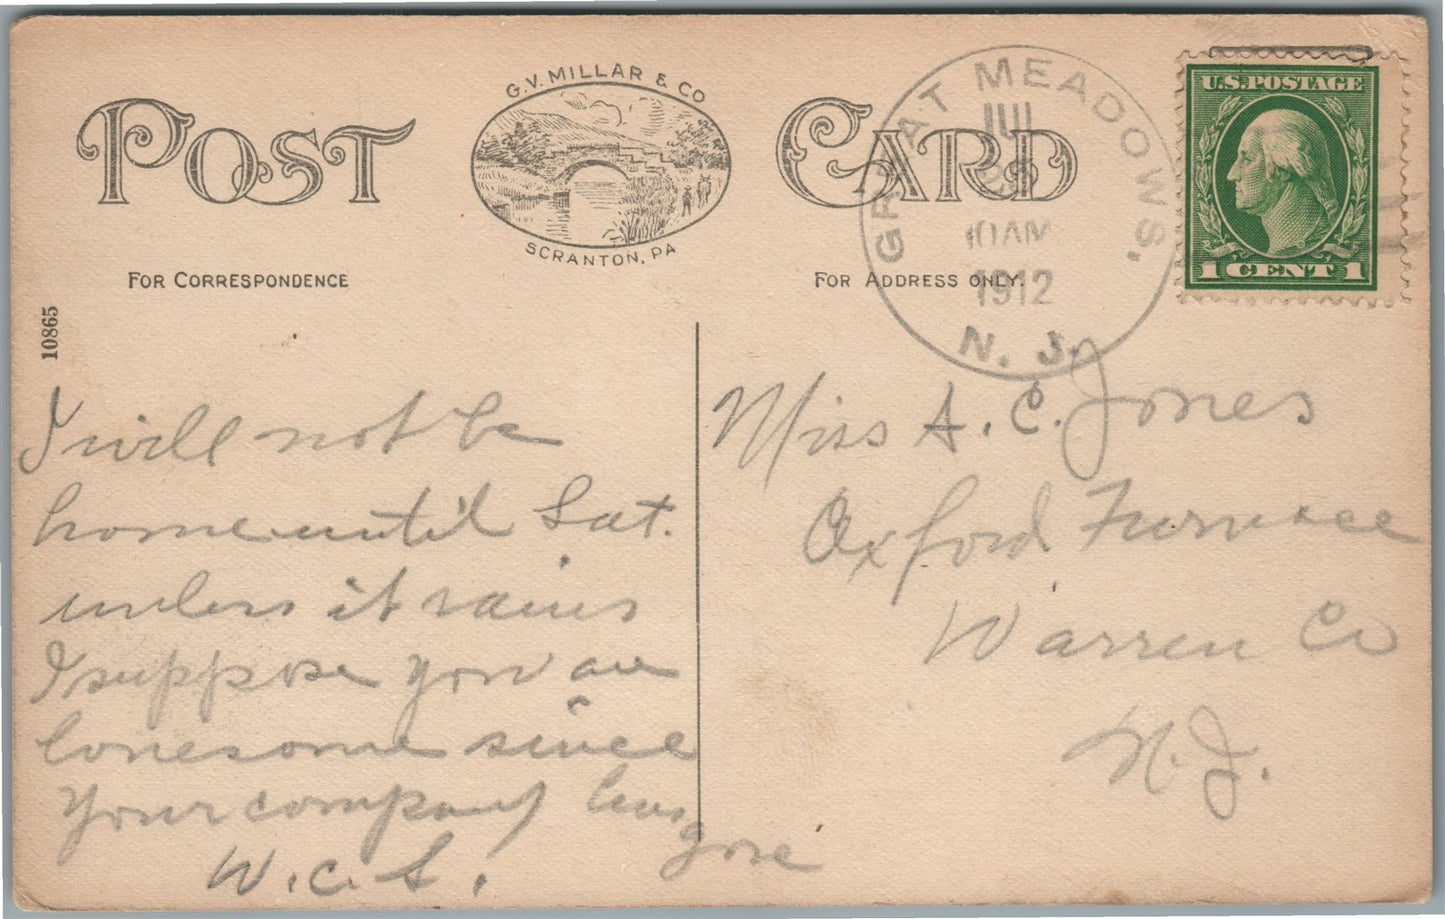 POST CARD
G. V. MILLAR & CO
SCRANTON, PA
FOR CORRESPONDENCE
FOR ADDRESS ONLY.
10865
GREAT MEADOWS,
JUL
10AM
1912
N. J.
U.S. POSTAGE
1 CENT 1
I will not be
home until Sat.
unless it rains
I suppose you are
lonesome since
your company has
gone
W. C. S.
Miss A. C. Jones
Oxford Furnace
Warren Co
N. J.